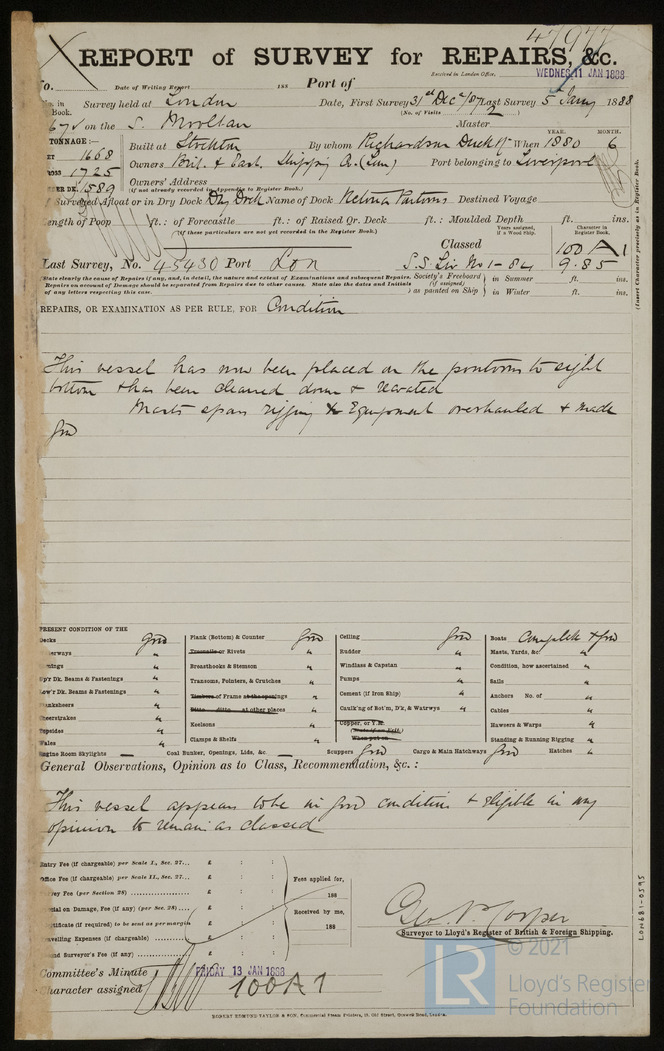 47977
REPORT of SURVEY for REPAIRS, &c.
Received in London Office, WEDNES. 11 JAN 1888
o. Date of Writing Report 188 Port of
o. in Book. Survey held at London Date, First Survey 31st Dec 87 Last Survey 5 Jany 1888
(No. of Visits 2)
675 on the S. Mooltan Master
TONNAGE:— YEAR. MONTH.
ET 1668 Built at Stockton By whom Richardson Duck When 1880 6
ROSS 1725 Owners Brit. & East. Shipping Co. (Lim) Port belonging to Liverpool
ER DK. 1589 Owners' Address
(if not already recorded in Appendix to Register Book.)
f Surveyed Afloat or in Dry Dock Dry Dock Name of Dock Victoria Pontoons Destined Voyage
ength of Poop ft.: of Forecastle ft.: of Raised Qr. Deck ft.: Moulded Depth ft. ins.
(If these particulars are not yet recorded in the Register Book.)
Years assigned, if a Wood Ship. Character in Register Book.
Classed 100 A 1
Last Survey, No. 45430 Port Lon S.S. Liv No 1-84 9.85
State clearly the cause of Repairs if any, and, in detail, the nature and extent of Examinations and subsequent Repairs.
Repairs on account of Damage should be separated from Repairs due to other causes. State also the dates and Initials
of any letters respecting this case.
Society's Freeboard (if assigned) as painted on Ship in Summer ft. ins.
in Winter ft. ins.
(Insert Character precisely as in Register Book.
REPAIRS, OR EXAMINATION AS PER RULE, FOR Condition
This vessel has now been placed on the pontoons to sight
bottom & has been cleaned down &
Masts spars rigging & Equipment overhauled & made
good
PRESENT CONDITION OF THE
Decks good Plank (Bottom) & Counter good Ceiling good Boats Complete & good
erways " Treenails or Rivets " Rudder " Masts, Yards, &c. "
mings " Breasthooks & Stemson " Windlass & Capstan " Condition, how ascertained "
Up'r Dk. Beams & Fastenings " Transoms, Pointers, & Crutches " Pumps " Sails "
Low'r Dk. Beams & Fastenings " Timbers of Frame at the openings Cement (if Iron Ship) " Anchors No. of "
lanksheers " Ditto ditto at other places Caulk'ng of Bot'm, D'k, & Watrwys " Cables "
heerstrakes " Keelsons " Copper, or Y.M. Hawsers & Warps "
opsides " Clamps & Shelfs " (State if on Felt) Standing & Running Rigging "
Wales " When put on
Engine Room Skylights — Coal Bunker, Openings, Lids, &c. — Scuppers good Cargo & Main Hatchways good Hatches "
General Observations, Opinion as to Class, Recommendation, &c. :
This vessel appears to be in good condition & Eligible in my
opinion to remain as classed
Entry Fee (if chargeable) per Scale I., Sec. 27... £ : :
Office Fee (if chargeable) per Scale II., Sec. 27... £ : : Fees applied for,
vey Fee (per Section 28) £ : : 188
cial on Damage, Fee (if any) (per Sec. 28) £ : : Received by me,
rtificate (if required) to be sent as per margin £ : : 188
avelling Expenses (if chargeable) £ : :
nd Surveyor's Fee (if any) £ : :
Geo. P. Cooper
Surveyor to Lloyd's Register of British & Foreign Shipping.
Committee's Minute FRIDAY 13 JAN 1888
Character assigned 100A1
ROBERT EDMUND TAYLOR & SON, Commercial Steam Printers, 19, Old Street, Goswell Road, London.
LON681-0595
LR
© 2021
Lloyd's Register
Foundation